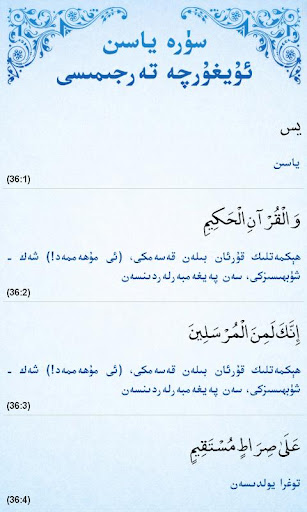 سۈرە ياسىن
ئۇيغۇرچە تەرجىمىسى
يس
ياسىن
(36:1)
وَالْقُرْآنِ الْحَكِيمِ
ھېكمەتلىك قۇرئان بىلەن قەسەمكى، (ئى مۇھەممەد!) شەك -
شۈبھىسىزكى، سەن پەيغەمبەرلەردىنسەن
(36:2)
إِنَّكَ لَمِنَ الْمُرْسَلِينَ
ھېكمەتلىك قۇرئان بىلەن قەسەمكى، (ئى مۇھەممەد!) شەك -
شۈبھىسىزكى، سەن پەيغەمبەرلەردىنسەن
(36:3)
عَلَىٰ صِرَاطٍ مُسْتَقِيمٍ
توغرا يولدىسەن
(36:4)